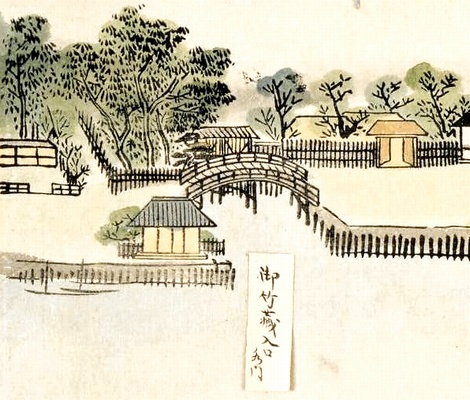 御竹蔵入口
水門